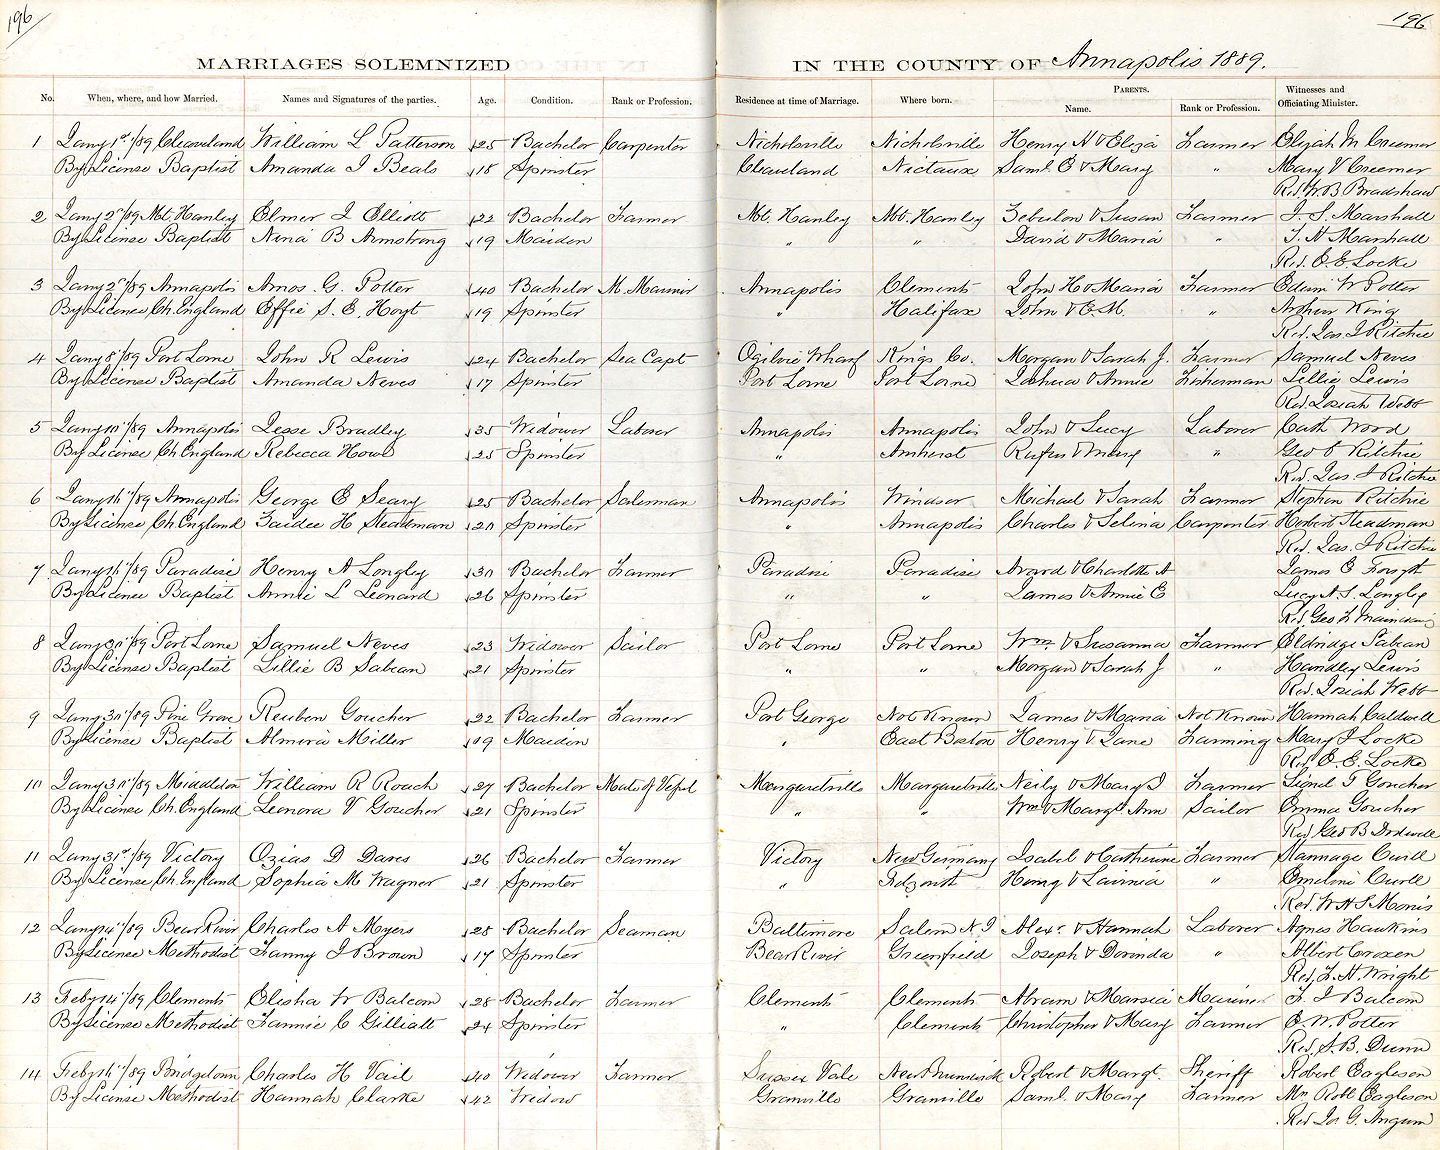 196
196
MARRIAGES SOLEMNIZED IN THE COUNTY OF Annapolis 1889.
No. When, where, and how Married. Names and Signatures of the parties. Age. Condition. Rank or Profession. Residence at time of Marriage. Where born. PARENTS. Name. Rank or Profession. Witnesses and Officiating Minister.
1 Jany 1st /89 Cleaveland William L Patterson 25 Bachelor Carpenter Nicholsville Nicholsville Henry H & Eliza Farmer Elijah M Creemer
By License Baptist Amanda J Beals 18 Spinster Cleaveland Nictaux Saml. E & Mary " Mary V Creemer
Rev. W. B Bradshaw
2 Jany 2nd /89 Mt. Hanley Elmer I Elliott 22 Bachelor Farmer Mt. Hanley Mt. Hanley Zebulon & Susan Farmer I. S. Marshall
By License Baptist Nina B Armstrong 19 Maiden " " David & Maria " T. H Marshall
Rev. E. E Locke
3 Jany 2nd /89 Annapolis Amos. G. Potter 40 Bachelor M. Marinir Annapolis Clements John H & Maria Farmer Edwin W Potter
By License Ch. England Effie S. E. Hoyt 19 Spinster " Halifax John & E. M. " Arthur King
Rev. Jas. J Ritchie
4 Jany 8th /89 Port Lorne John R Lewis 24 Bachelor Sea Capt Ogilvie Wharf Kings Co. Morgan & Sarah J. Farmer Samuel Neves
By License Baptist Amanda Neves 17 Spinster Port Lorne Port Lorne Joshua & Annie Fisherman Lillie Lewis
Rev. Josiah Webb
5 Jany 10th /89 Annapolis Jesse Bradley 35 Widower Laborer Annapolis Annapolis John & Lucy Laborer Cath Wood
By License Ch England Rebecca Howe 25 Spinster " Amherst Rufus & Mary " Geo E Ritchie
Rev. Jas. J Ritchie
6 Jany 16th /89 Annapolis George E Seary 25 Bachelor Salesman Annapolis Windsor Michael & Sarah Farmer Stephen Ritchie
By License Ch England Zaidee H Steadman 20 Spinster " Annapolis Charles & Selina Carpenter Herbert Steadman
Rev. Jas. J Ritchie
7 Jany 16th /89 Paradise Henry A Longley 30 Bachelor Farmer Paradise Paradise Avard & Charlotte A James E Forsyth
By License Baptist Annie L Leonard 26 Spinster " " James & Annie E Lucy A. S. Longley
Rev. Geo
8 Jany 30th /89 Port Lorne Samuel Neves 23 Widower Sailor Port Lorne Port Lorne Wm. & Susanna Farmer Eldridge Sabean
By License Baptist Lillie B Sabean 21 Spinster " " Morgan & Sarah J " Handley Lewis
Rev. Josiah Webb
9 Jany 30th /89 Pine Grove Reuben Goucher 22 Bachelor Farmer Port George Not Known James & Maria Not Known Hannah Caldwell
By License Baptist Almira Miller 19 Maiden " East Boston Henry & Jane Farming Mary J Locke
Rev. E. E. Locke
10 Jany 30th /89 Middleton William R Roach 27 Bachelor Mate of Vessel Margaretville Margaretville Neily & Mary J Farmer Lionel G Goucher
By License Ch. England Leonora V Goucher 21 Spinster " " Wm & Margt. Ann Sailor Emma Goucher
Rev Geo B
11 Jany 31st /89 Victory Ozias D Dares 26 Bachelor Farmer Victory New Germany Isabel & Catherine Farmer Stannage Curll
By License Ch. England Sophia M Wagner 21 Spinster " Henry & Lavinia " Emeline Curll
Rev. W H S Morris
12 Jany 14th /89 Bear River Charles A Myers 28 Bachelor Seaman Baltimore Salem N. J Alexr. & Hannah Laborer Agnes Hawkins
By License Methodist Fanny J Brown 17 Spinster Bear River Greenfield Joseph & Dorinda " Albert Croxen
Rev. F. H Wright
13 Feby 14th /89 Clements Elisha W Balcom 28 Bachelor Farmer Clements Clements Abram & Marsia Mariner F. J Balcom
By License Methodist Fannie C Gilliatt 24 Spinster " Clements Christopher & Mary Farmer E. W. Potter
Rev. S. B. Dunn
14 Feby 16th /89 Bridgetown Charles H Vail 40 Widower Farmer Sussex Vale New Brunswick Robert & Margt. Sheriff Robert Eagleson
By License Methodist Hannah Clarke 42 Widow Granville Granville Saml. & Mary Farmer Mrs Robt Eagleson
Rev Jos G. Angwin